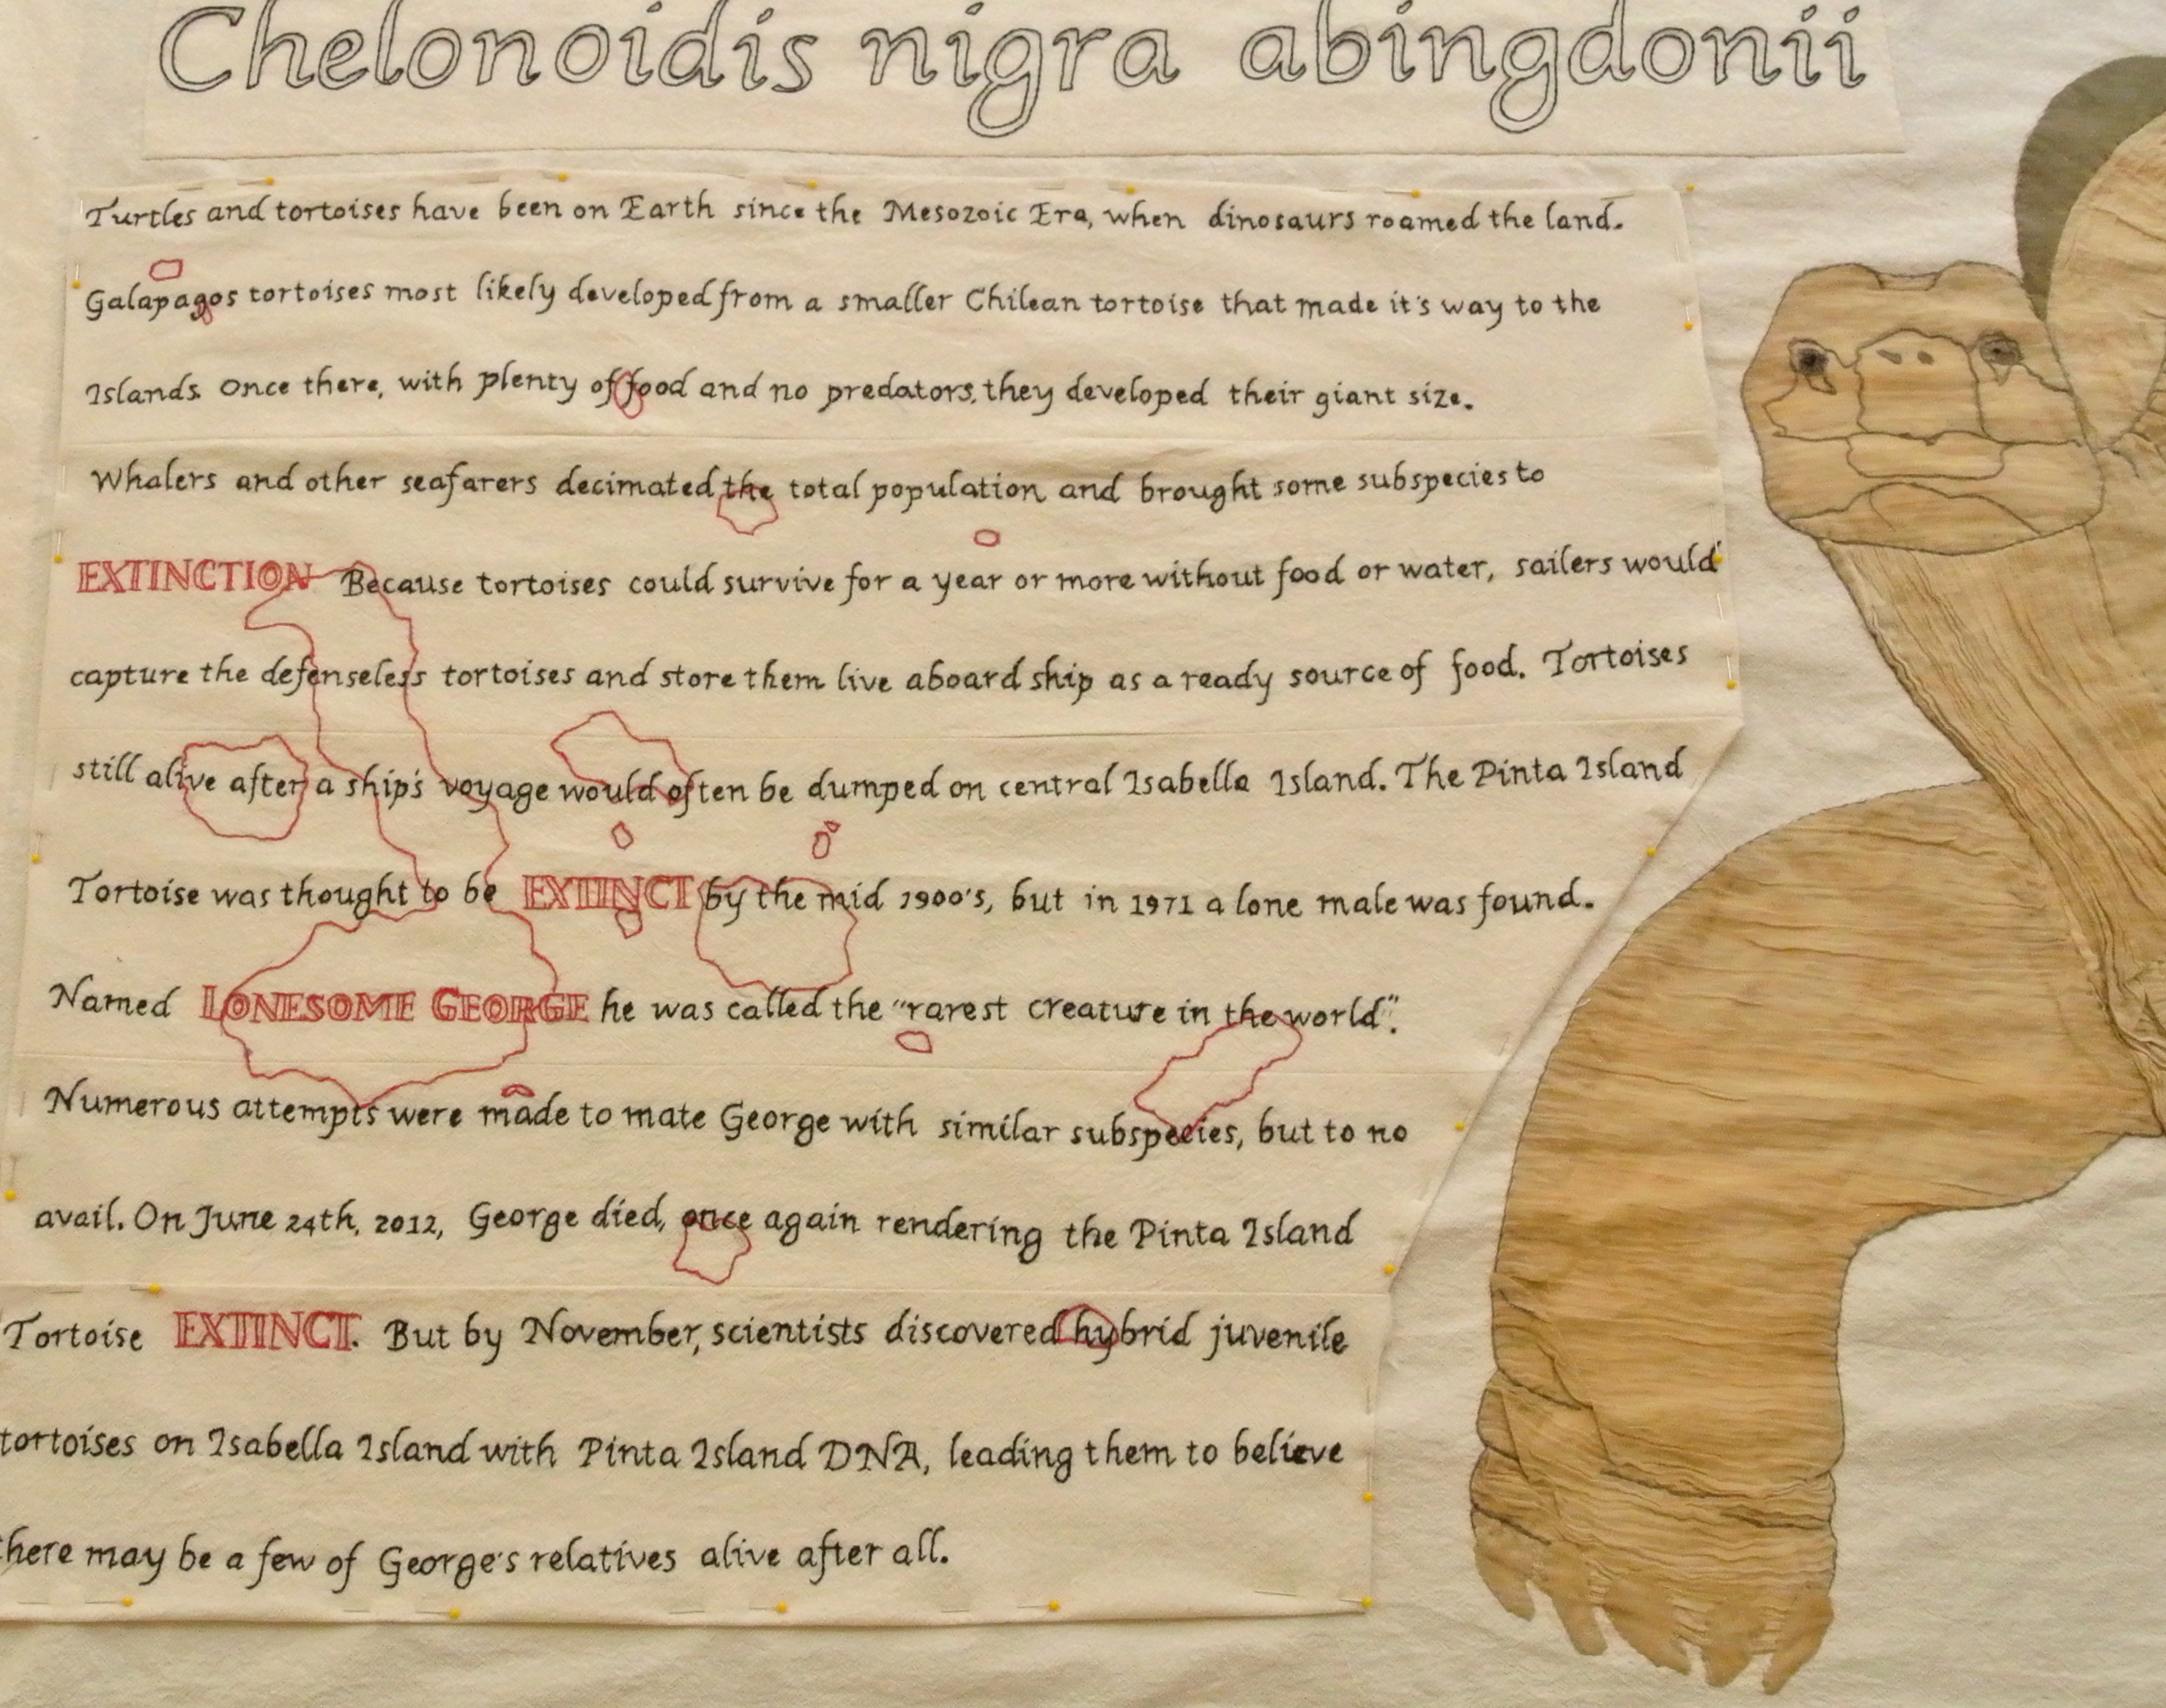 Chelonoidis nigra abingdonii
Turtles and tortoises have been on Earth since the Mesozoic Era, when dinosaurs roamed the land.
Galapagos tortoises most likely developed from a smaller Chilean tortoise that made it's way to the
Islands. Once there, with plenty of food and no predators, they developed their giant size.
Whalers and other seafarers decimated the total population and brought some subspecies to
EXTINCTION Because tortoises could survive for a year or more without food or water, sailers would
capture the defenseless tortoises and store them live aboard ship as a ready source of food. Tortoises
still alive after a ship's voyage would often be dumped on central Isabella Island. The Pinta Island
Tortoise was thought to be EXTINCT by the mid 1900's, but in 1971 a lone male was found.
Named LONESOME GEORGE he was called the "rarest creature in the world".
Numerous attempts were made to mate George with similar subspecies, but to no
avail. On June 24th, 2012, George died, once again rendering the Pinta Island
Tortoise EXTINCT. But by November, scientists discovered hybrid juvenile
tortoises on Isabella Island with Pinta Island DNA, leading them to believe
there may be a few of George's relatives alive after all.